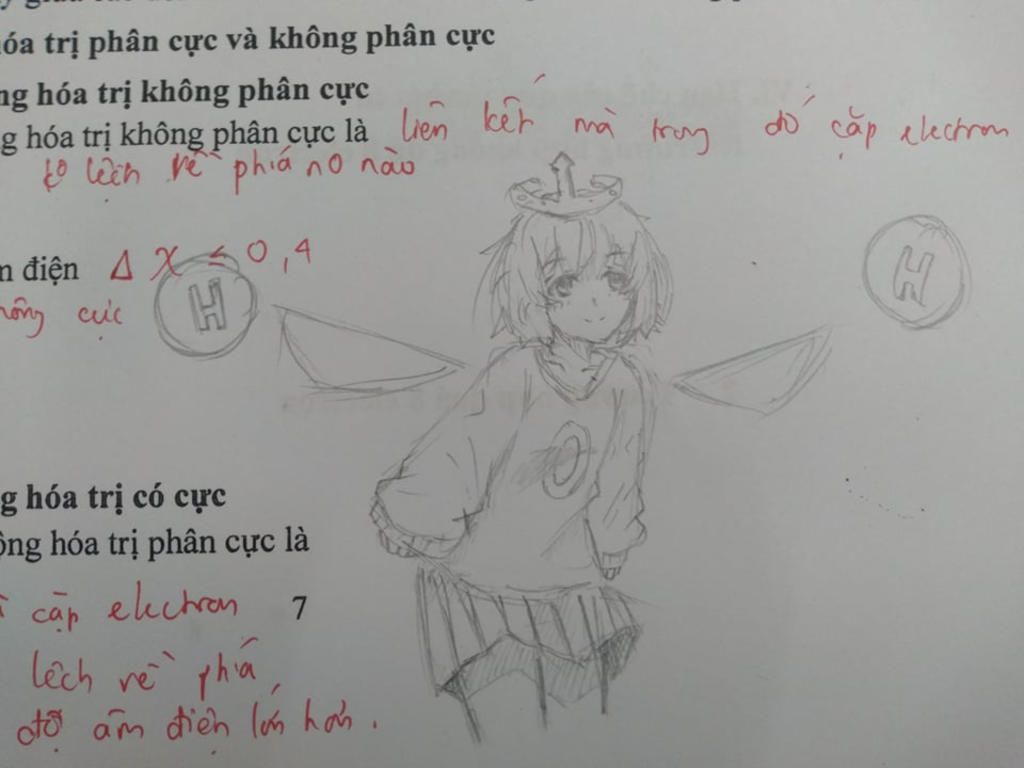 óa trị phân cực và không phân cực
ng hóa trị không phân cực
g hóa trị không phân cực là liên kết mà trong đó cặp electron
ko lệch về phía no nào
m điện Δ X ≤ 0,4
hông cực
H
H
O
g hóa trị có cực
ộng hóa trị phân cực là
cặp electron 7
lệch về phía
độ âm điện lớn hơn.